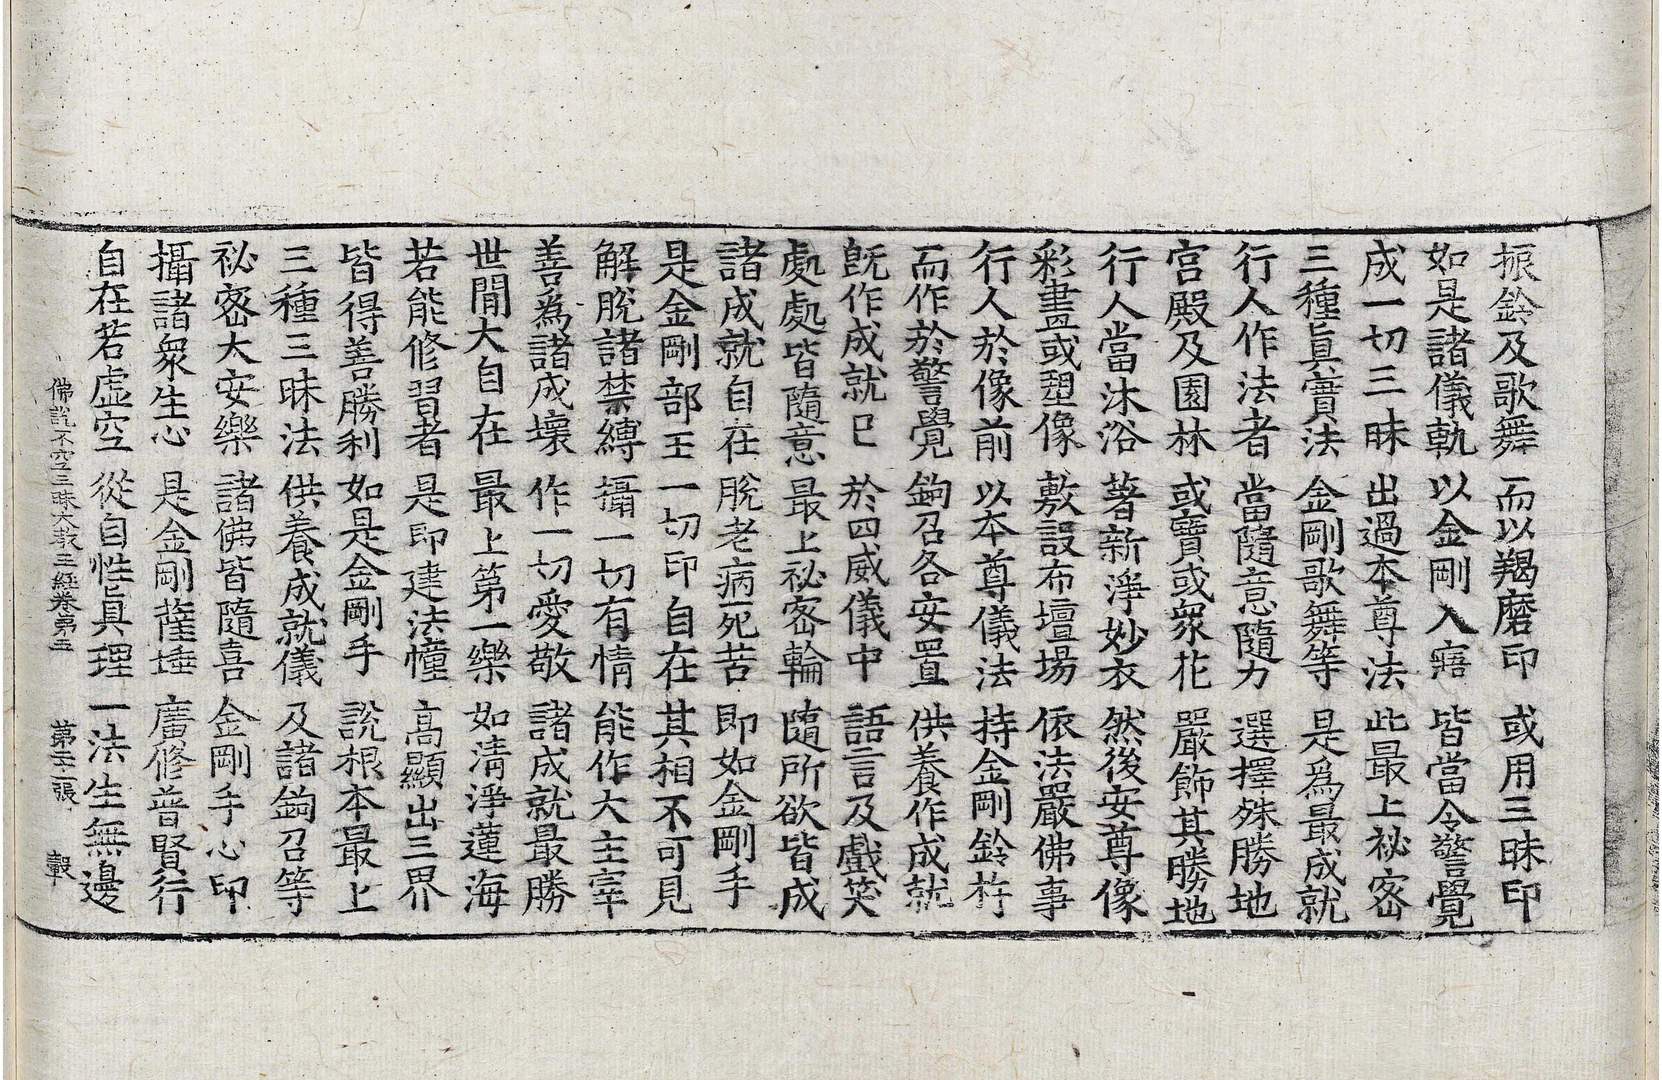 振鈴及歌舞 而以羯磨印 或用三昧印
如是諸儀軌 以金剛入寤 皆當令警覺
成一切三昧 出過本尊法 此最上祕密
三種眞實法 金剛歌舞等 是爲最成就
行人作法者 當隨意隨力 選擇殊勝地
宮殿及園林 或寶或衆花 嚴飾其勝地
行人當沐浴 著新淨妙衣 然後安尊像
彩畫或塑像 敷設布壇場 依法嚴佛事
行人於像前 以本尊儀法 持金剛鈴杵
而作於警覺 鉤召各安置 供養作成就
旣作成就已 於四威儀中 語言及戲笑
處處皆隨意 最上祕密輪 隨所欲皆成
諸成就自在 脫老病死苦 即如金剛手
是金剛部王 一切印自在 其相不可見
解脫諸禁縛 攝一切有情 能作大主宰
善爲諸成壞 作一切愛敬 諸成就最勝
世間大自在 最上第一樂 如清淨蓮海
若能修習者 是即建法幢 高顯出三界
皆得善勝利 如是金剛手 說根本最上
三種三昧法 供養成就儀 及諸鉤召等
祕密大安樂 諸佛皆隨喜 金剛手心印
攝諸衆生心 是金剛薩埵 廣修普賢行
自在若虛空 從自性眞理 一法生無邊
佛說不空三昧大教王經卷第五 第 張 轂